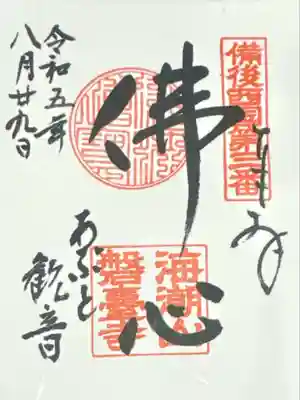 備後西國第三番
奉拝
佛心
海潮山
磐臺寺
あぶと
観音
令和五年
八月廿九日